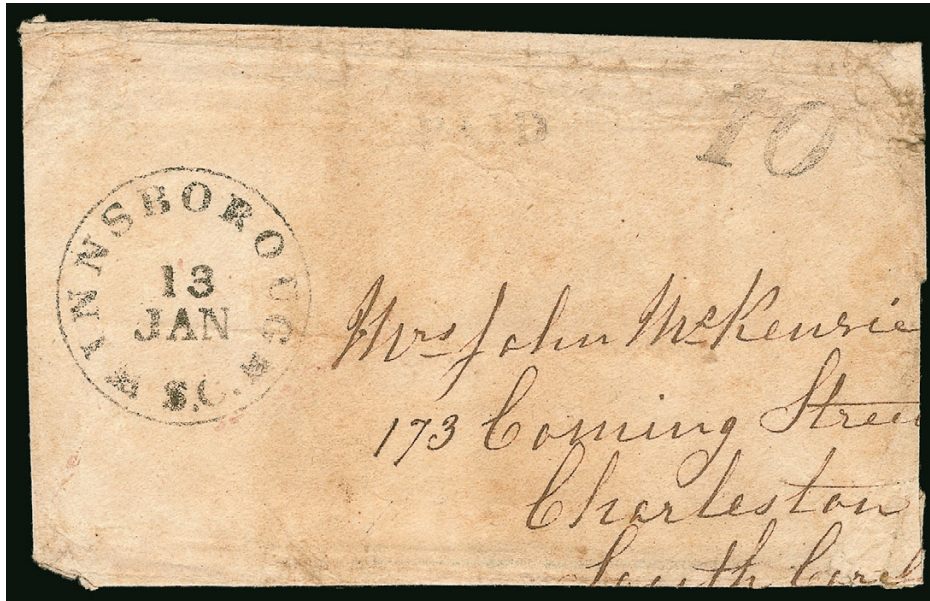 PAID
10
INNSBOROUG
13
JAN
S.C.
Mrs John McKenzie
173 Coming Stree
Charleston
South Carol